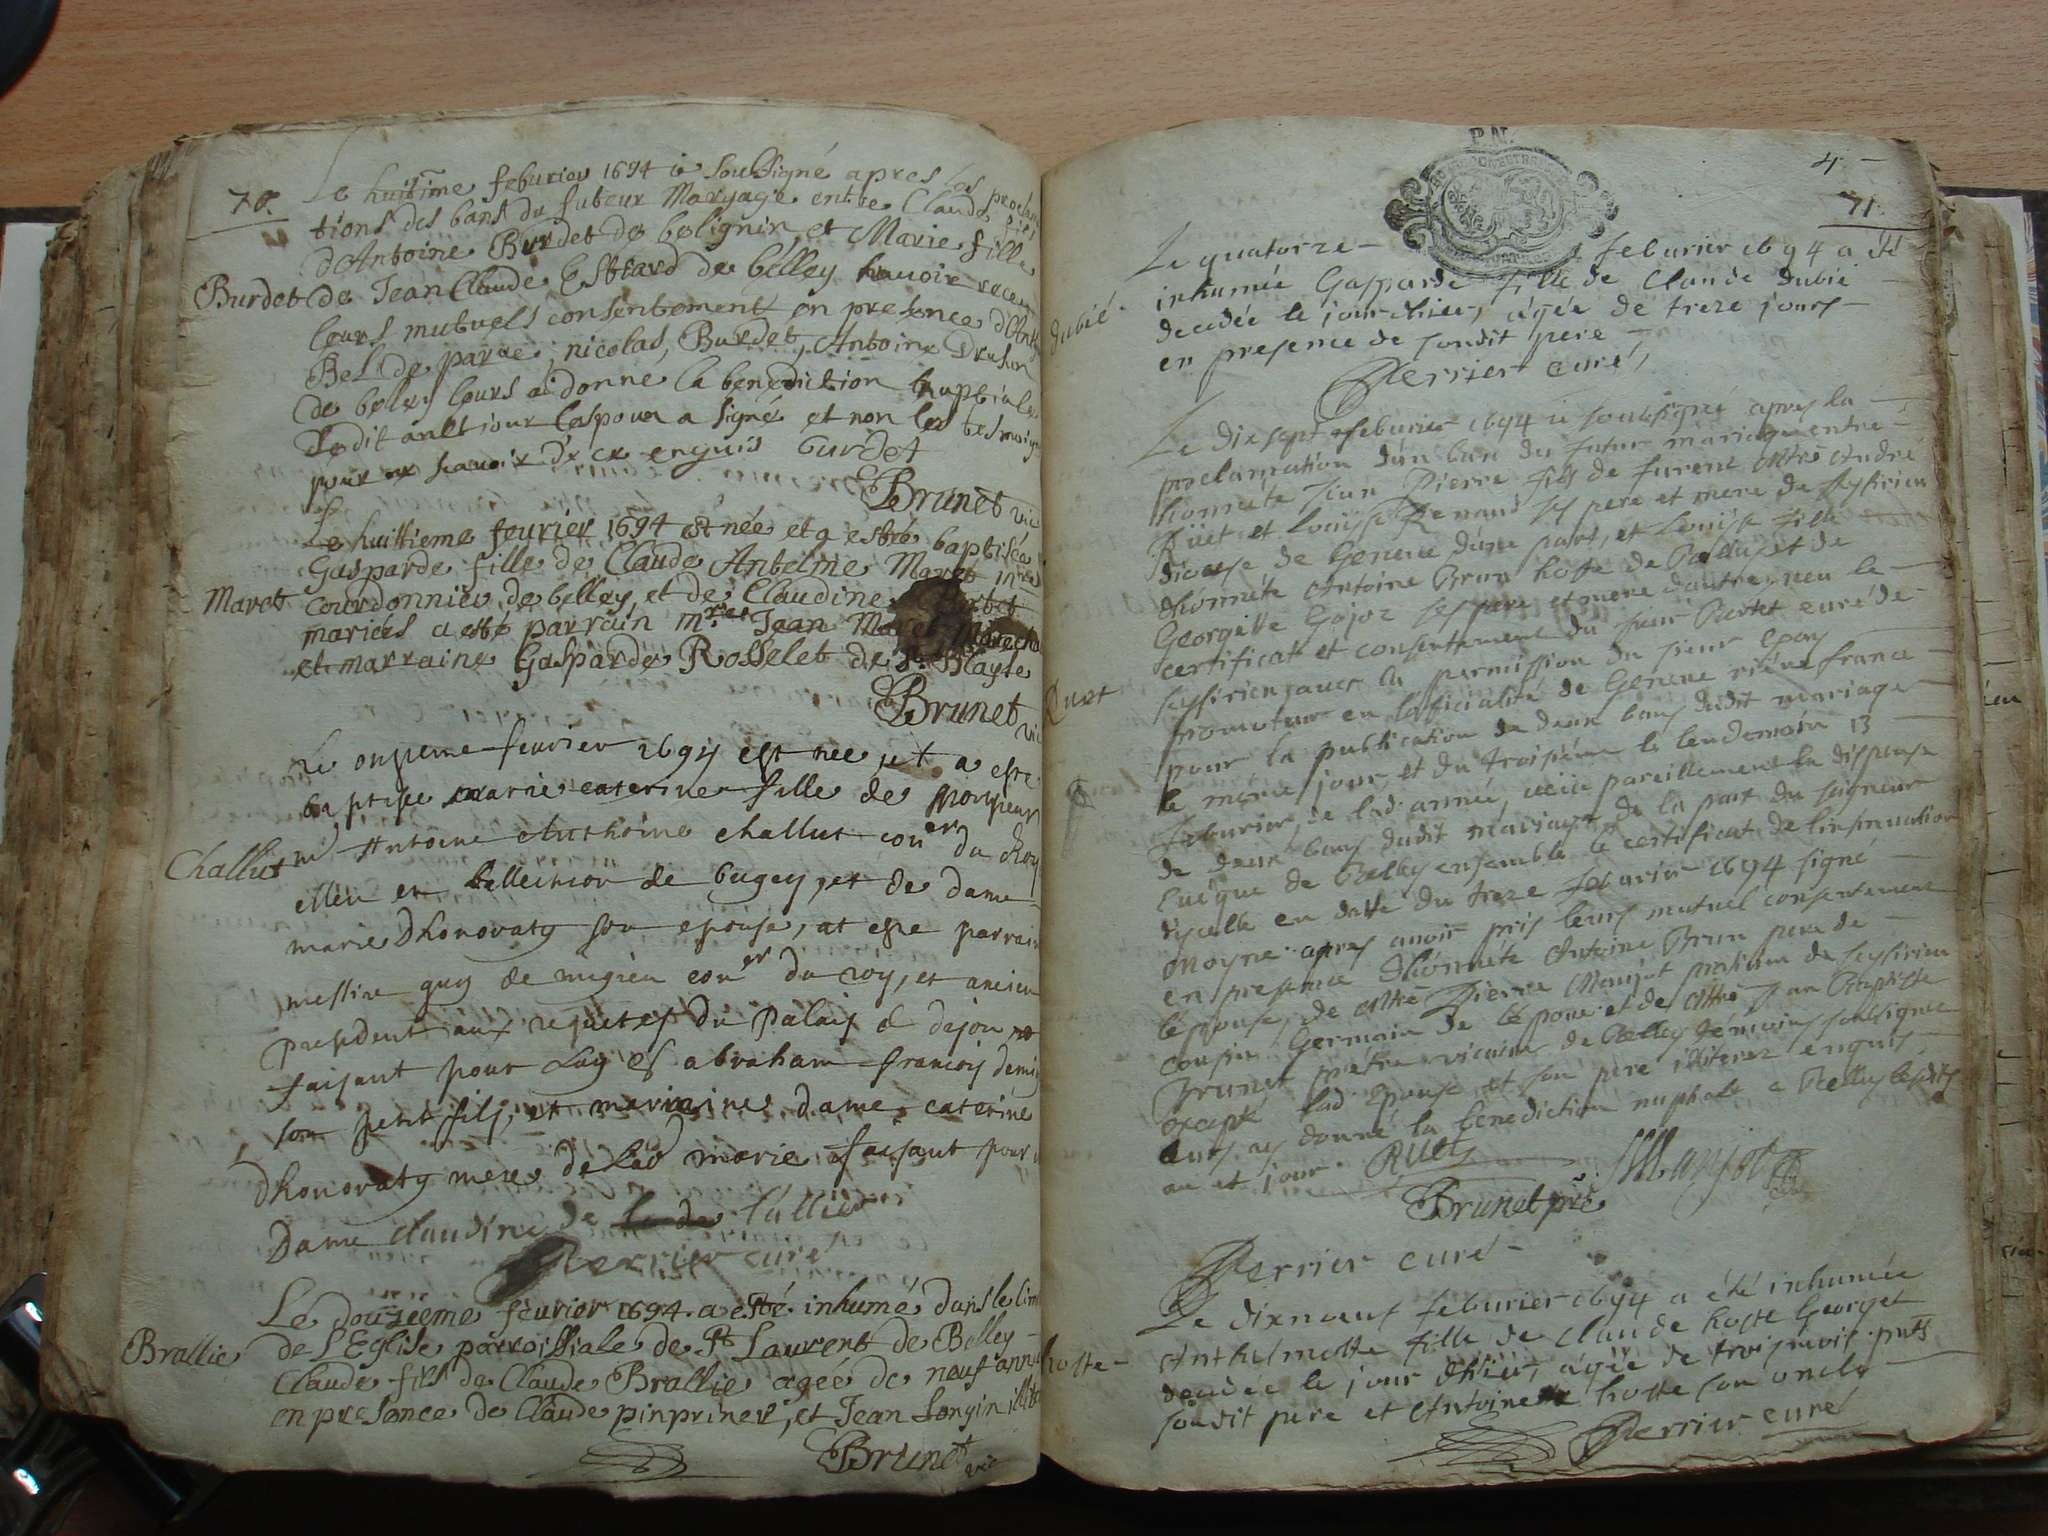 70.
Le huitime feburier 1694 ie soubsigné apres les procla
tions des bans du futeur Maryage entre Claude fils
d'Antoine Burdet de belignin et Marie fille
Burdet
de Jean Claude de belley havoir receu
leurs mutuels consentement en presence d'Ant
Bel de parve, nicolas Burdet, Antoine
de beley leurs ai donne la benediction nuptiale
ledit an et jour lespoux a signé et non les tesmoigns
pour ne scavoir de ce enquis burdet
Brunet vic
Le huittieme fevrier 1694 est née et a esté baptisée
Gasparde fille de Claude Antelme Maret
Maret
courdonnier de belley et de Claudine
mariés a esté parrain mre Jean Maret
et marraine Gasparde Rosselet de St Blayse
Brunet vic
Le onzieme fevrier 1694 est nee et a este
baptisee marie caterine fille de monsieur
Challut
me Antoine Anthoine challut coner du Roy
esleu en lellection de bugey, et de dame
marie Dhonoraty son epouse, at este parrain
messire guy de migieu coner du roy, et ancien
president aux requetes du Palais de dijon et
faisant pour luy abraham francois demig
son petit fils, et marraine dame caterine
Dhonoraty mere de lad marie faisant pour
Dame claudine de lallier
Perrier curé
Le douzieme fevrier 1694 a esté inhumé dans le
Brallie
de l'Eglise parroissiale de St Laurent de Belley
Claude fils de Claude Brallie agée de neuf
en presence de Claude pinpriner, et Jean Songin
Brunet vic
P.N.
4
71
Le quatorze feburier 1694 a été
dubié
inhumée Gasparde fille de Claude dubié
decedée le jour dhier, agée de treze jours
en presence de sondit pere
Perrier curé
Le dix sept feburier 1694 ie soubsigné apres la
proclamation dun ban du futur mariage entre
honnête Jean Pierre fils de furent Mtre André
Rüet et Louïse Renaud ses pere et mere de seyssirieu
diocese de Geneve dune part, et Louise fille
dhonnête Antoine Brun hoste de et de
Georgette Gajoz ses pere et mere dautre, veu le
certificat et consentement du sieur curé de
Ruet
seyssirieu, avec la permission du sieur
promoteur en lofficialité de Geneve riere france
pour la publication de deux bans dudit mariage
le meme jour, et du troisieme le lendemain 13
feburier de lad année, veüe pareillement la dispense
de deux bans dudit mariage de la part du seigneur
Eveque de Belley ensemble le certificat de linsinuation
dycelle en datte du treze feburier 1694 signé
Moyne apres avoir pris leurs mutuel consentement
en presence dhonnête Antoine Brun pere de
lepouse, de Mtre Pierre Manjot praticien de seyssirieu
cousin Germain de lepoux et de Mtre Jean Baptiste
Brunet prêtre vicaire de Belley témoins soubsignes
excepté lad. Epouse et son pere illiterez enquis,
leurs ay donné la benediction nuptiale a Belley lesdits
an et jour Ruet
Manjot
Brunet pre
Perrier curé
Le dixneuf feburier 1694 a été inhumée
hoste
Anthelmette fille de Claude hoste Georget
decedée le jour dhier, agée de trois mois pnts
sondit pere et Antoine hoste son oncle
Perrier curé